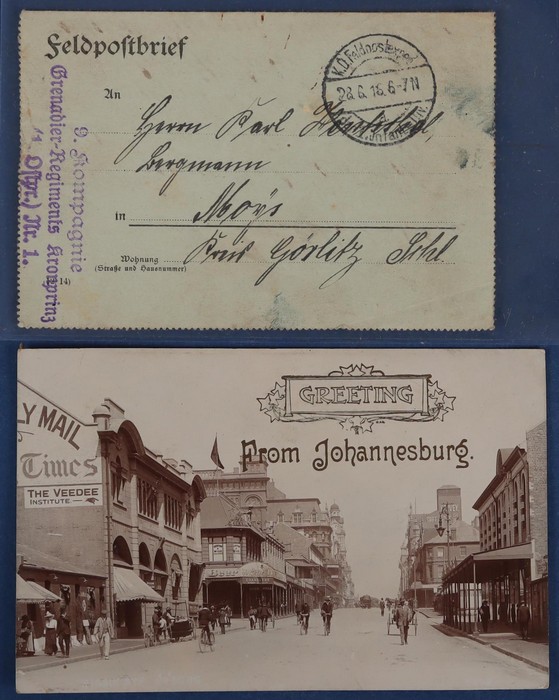 Feldpostbrief
K.D. Feldpostexped.
28.6.16.6-7N
An
Herrn Karl
Bergmann
in Moys
Kreis Görlitz Schl.
Wohnung
(Straße und Hausnummer)
14)
9. Kompagnie
Grenadier-Regiments Kronprinz
(1. Ostpr.) Nr. 1.
GREETING
From Johannesburg.
LY MAIL
Times
THE VEEDEE
INSTITUTE